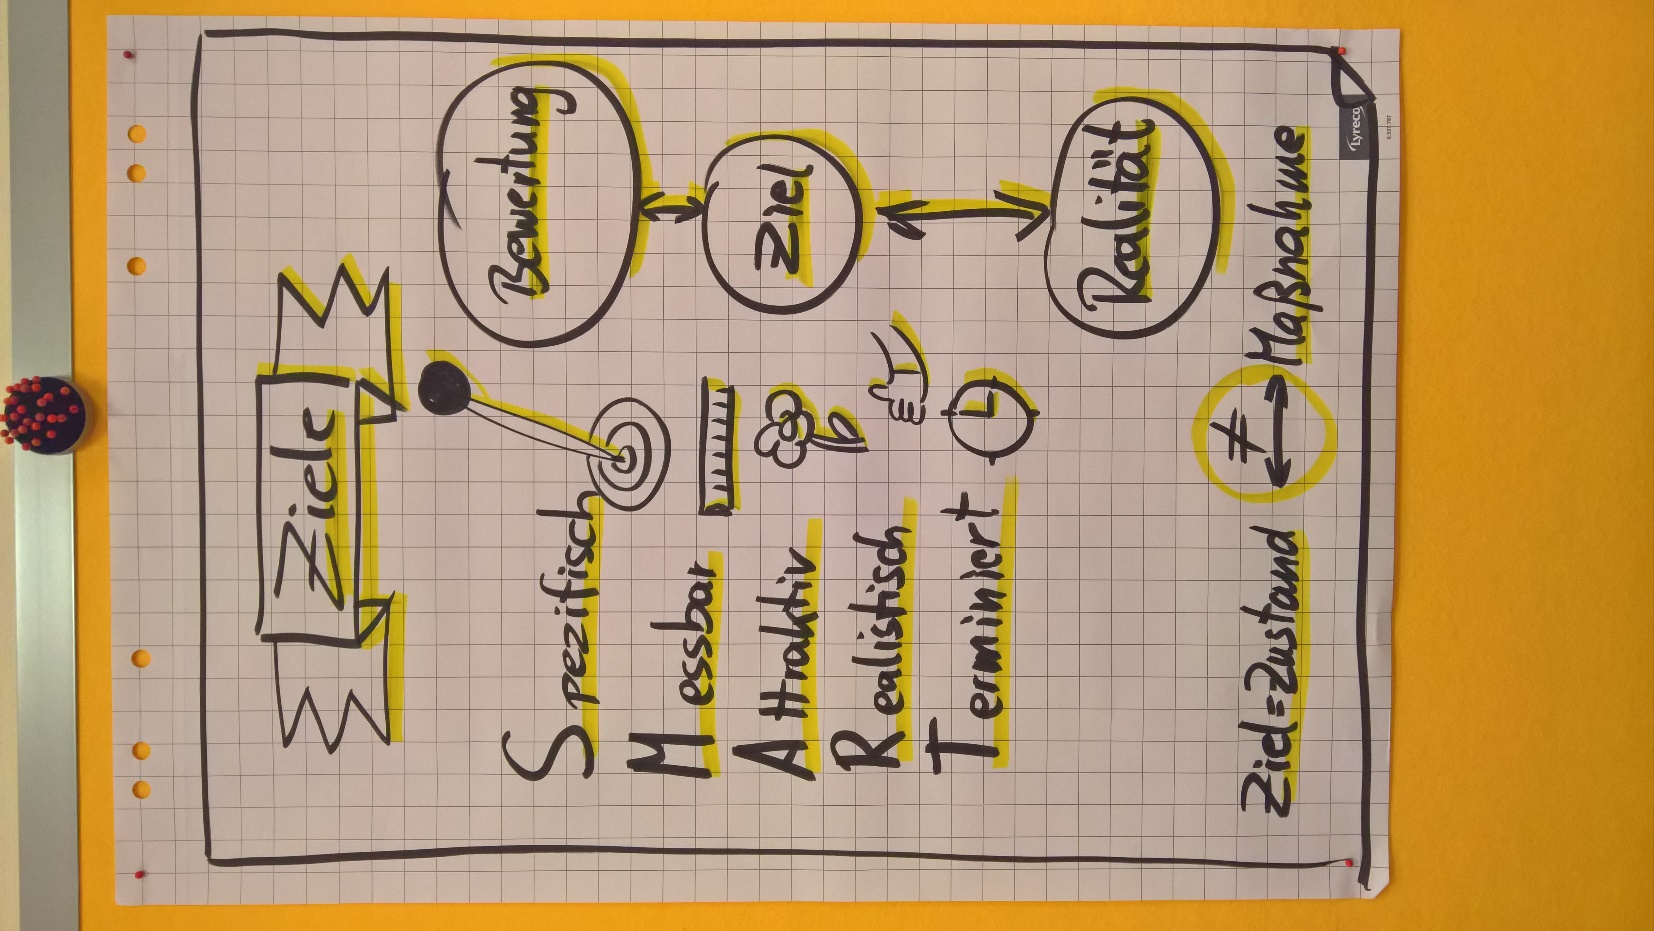 Ziele
Spezifisch
Messbar
Attraktiv
Realistisch
Terminiert
Bewertung
Ziel
Realität
Ziel=Zustand ≠ Maßnahme
Lyreco